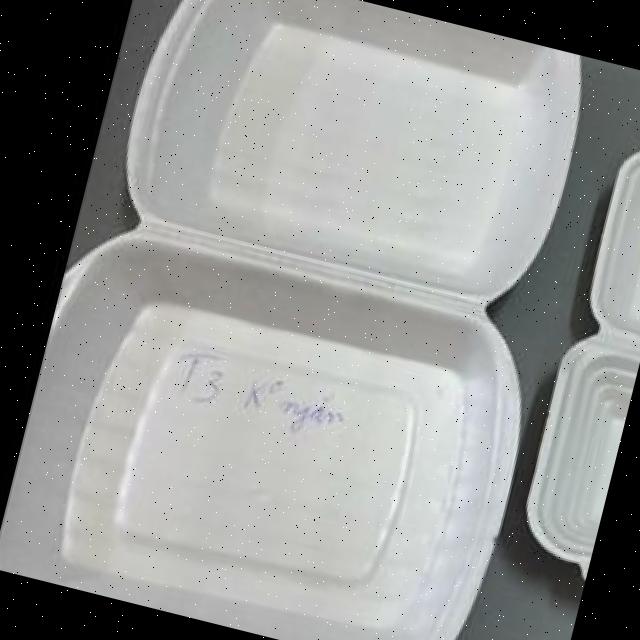 T3 Kº ngán